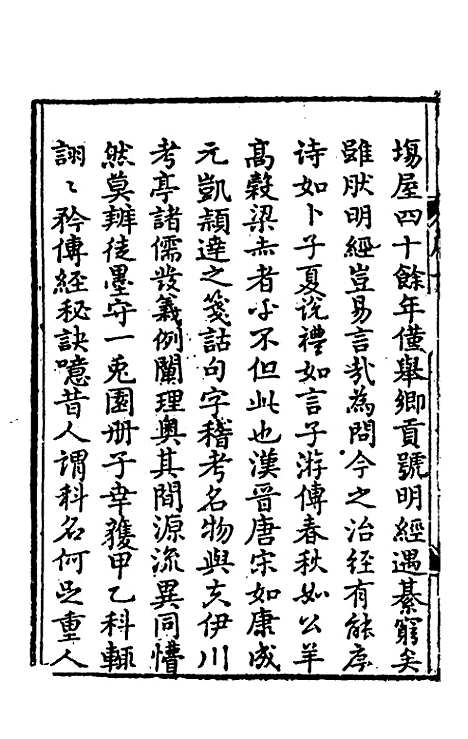 塲屋四十餘年僅舉鄉貢號明經遇綦窮矣
雖肰明經豈易言㢤為問今之治經有能序
诗如卜子夏説禮如言子游傳春秋如公羊
高榖梁赤者乎不但此也漢晉唐宋如康成
元凱頴達之箋詁句字稽考名物與夫伊川
考亭諸儒發義例闡理奥其間源流異同懵
然莫辨徒墨守一兎園册子幸獲甲乙科輒
詡〻矜傳經秘訣噫昔人謂科名何足重人